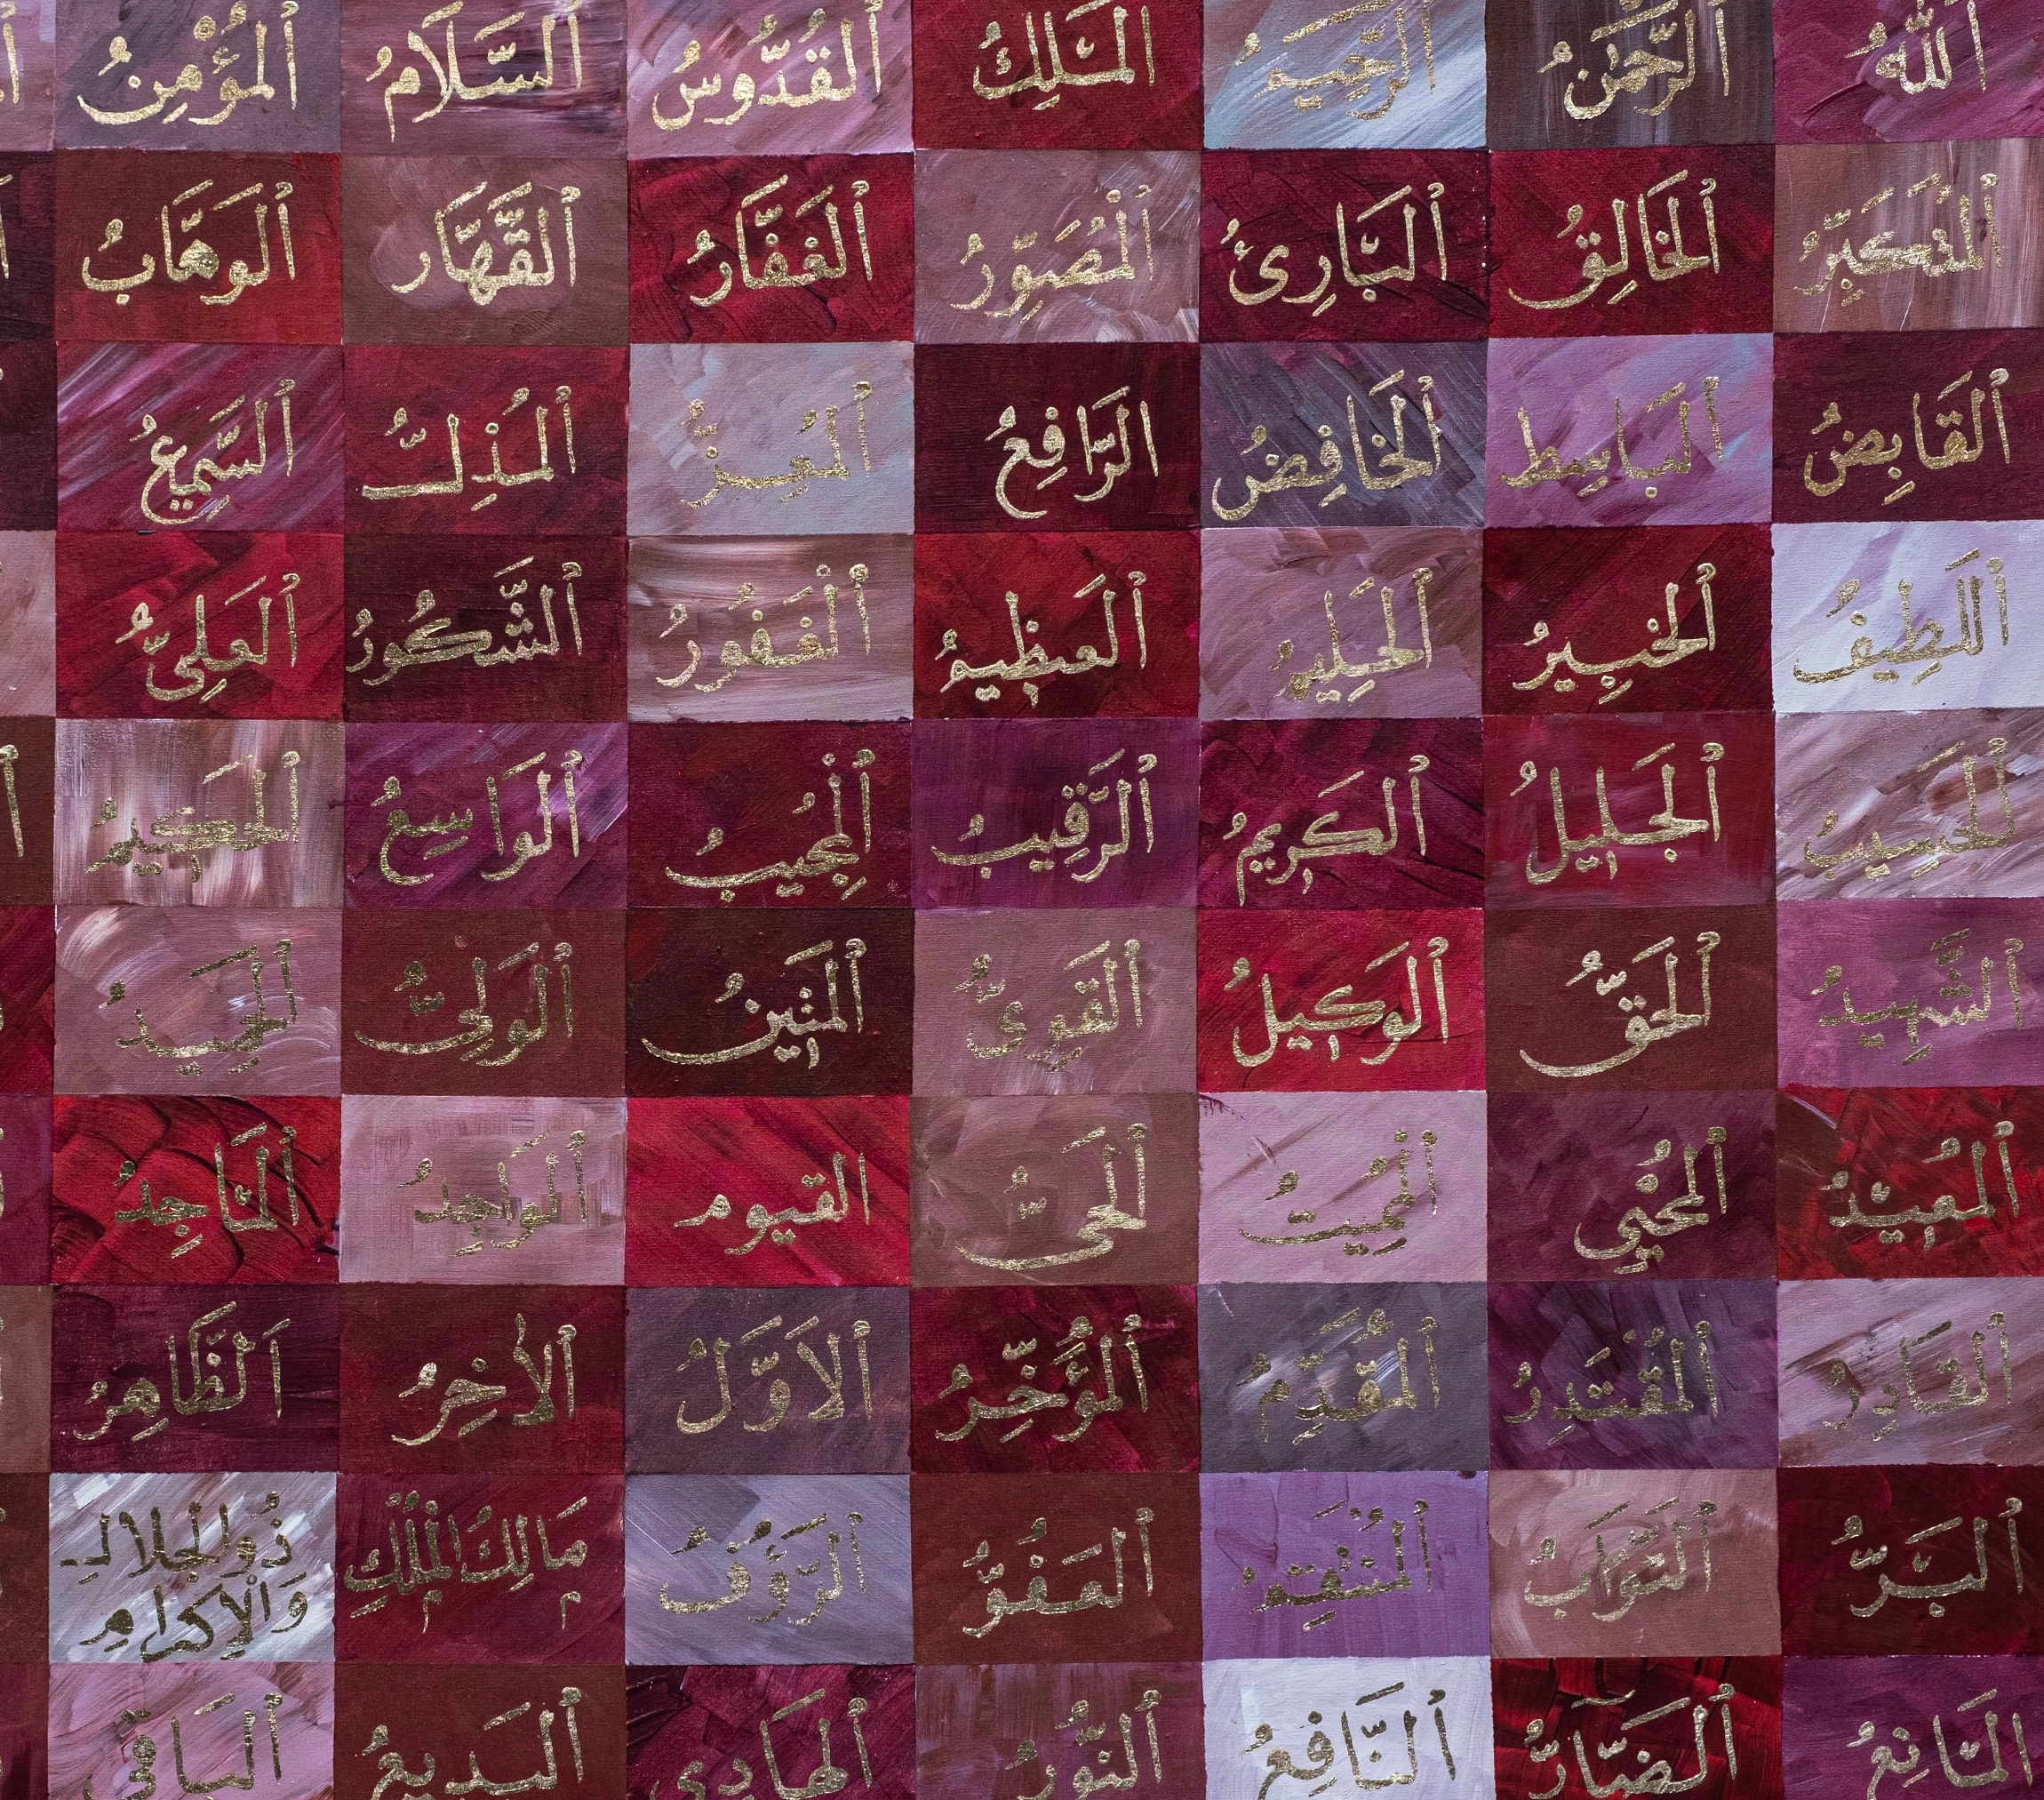 ٱللَّٰهُ ٱلرَّحْمَٰنُ ٱلرَّحِيمُ ٱلْمَلِكُ ٱلْقُدُّوسُ ٱلسَّلَامُ ٱلْمُؤْمِنُ
ٱلْمُتَكَبِّرُ ٱلْخَالِقُ ٱلْبَارِئُ ٱلْمُصَوِّرُ ٱلْغَفَّارُ ٱلْقَهَّار ٱلْوَهَّابُ
ٱلْقَابِضُ ٱلْبَاسِط ٱلْخَافِضُ ٱلرَّافِعُ ٱلْمُعِزُّ ٱلْمُذِلُّ ٱلسَّمِيعُ
ٱللَّطِيفُ ٱلْخَبِيرُ ٱلْحَلِيمُ ٱلْعَظِيمُ ٱلْغَفُورُ ٱلشَّكُورُ ٱلْعَلِيُّ
ٱلْحَسِيبُ ٱلْجَلِيلُ ٱلْكَرِيمُ ٱلرَّقِيبُ ٱلْمُجِيبُ ٱلْوَاسِعُ ٱلْحَكِيمُ
ٱلشَّهِيدُ ٱلْحَقُّ ٱلْوَكِيلُ ٱلْقَوِيُّ ٱلْمَتِينُ ٱلْوَلِيُّ ٱلْحَمِيدُ
ٱلْمُعِيدُ ٱلْمُحْيِي ٱلْمُمِيتُ ٱلْحَيُّ القيوم ٱلْوَاجِدُ ٱلْمَاجِدُ
ٱلْقَادِرُ ٱلْمُقْتَدِرُ ٱلْمُقَدِّمُ ٱلْمُؤَخِّرُ ٱلْأَوَّلُ ٱلْآخِرُ ٱلظَّاهِرُ
ٱلْبَرُّ ٱلتَّوَّابُ ٱلْمُنْتَقِمُ ٱلْعَفُوُّ ٱلرَّؤُفُ مَالِكُ الْمُلْكِ ذُو الْجَلَالِ
وَالْإِكْرَامِ
ٱلْمَانِعُ ٱلضَّارُّ ٱلنَّافِعُ ٱلنُّورُ ٱلْهَادِي ٱلْبَدِيعُ ٱلْبَاقِي